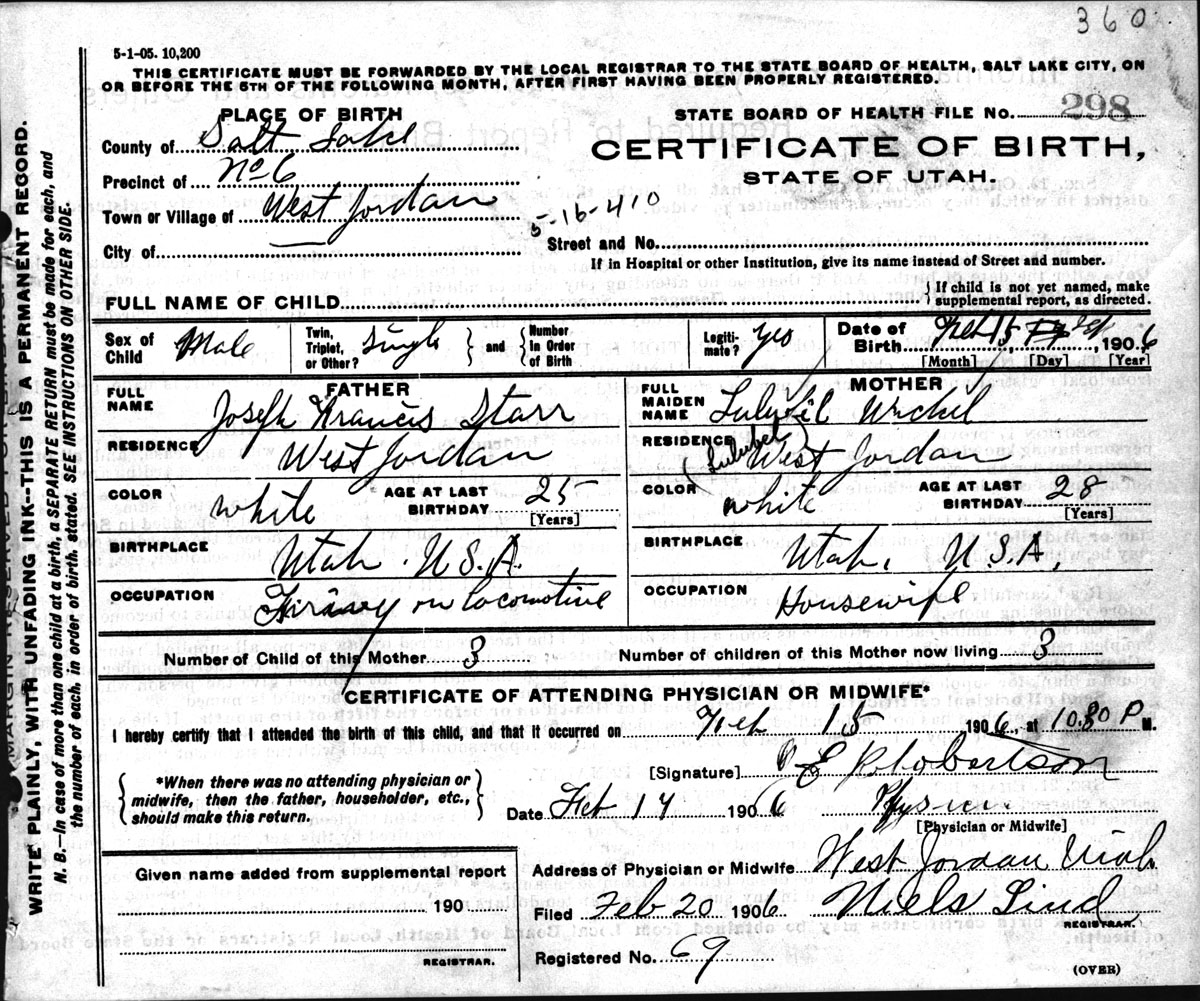 360
5-1-05. 10,200
THIS CERTIFICATE MUST BE FORWARDED BY THE LOCAL REGISTRAR TO THE STATE BOARD OF HEALTH, SALT LAKE CITY, ON
OR BEFORE THE 5TH OF THE FOLLOWING MONTH, AFTER FIRST HAVING BEEN PROPERLY REGISTERED.
PLACE OF BIRTH
STATE BOARD OF HEALTH FILE No. 298
County of Salt Lake
CERTIFICATE OF BIRTH,
Precinct of No 6
STATE OF UTAH.
Town or Village of West Jordan
5-16-410
City of
Street and No.
If in Hospital or other Institution, give its name instead of Street and number.
FULL NAME OF CHILD
{If child is not yet named, make
supplemental report, as directed.
Sex of Child Male
Twin, Triplet, or Other? Single } and { Number In Order of Birth
Legitimate? Yes
Date of Birth Feb 15 1906
[Month] [Day] [Year]
FATHER
FULL NAME Joseph Francis Starr
RESIDENCE West Jordan
COLOR white AGE AT LAST BIRTHDAY 25 [Years]
BIRTHPLACE Utah. U.S.A.
OCCUPATION on Locomotive
MOTHER
FULL MAIDEN NAME
RESIDENCE West Jordan
(Lulubel)
COLOR white AGE AT LAST BIRTHDAY 28 [Years]
BIRTHPLACE Utah, U.S.A,
OCCUPATION Housewife
Number of Child of this Mother 3 Number of children of this Mother now living 3
CERTIFICATE OF ATTENDING PHYSICIAN OR MIDWIFE*
I hereby certify that I attended the birth of this child, and that it occurred on Feb 15 1906, at 10.30 P M.
{*When there was no attending physician or
midwife, then the father, householder, etc.,
should make this return.}
[Signature] E Robertson
Date Feb 17 1906
[Physician or Midwife]
Given name added from supplemental report
190
REGISTRAR.
Address of Physician or Midwife West Jordan Utah
Filed Feb 20 1906 Niels Lind
REGISTRAR.
Registered No. 69
(OVER)
MARGIN RESERVED FOR
WRITE PLAINLY, WITH UNFADING INK--THIS IS A PERMANENT RECORD.
N. B.—In case of more than one child at a birth, a SEPARATE RETURN must be made for each, and
the number of each, in order of birth, stated. SEE INSTRUCTIONS ON OTHER SIDE.